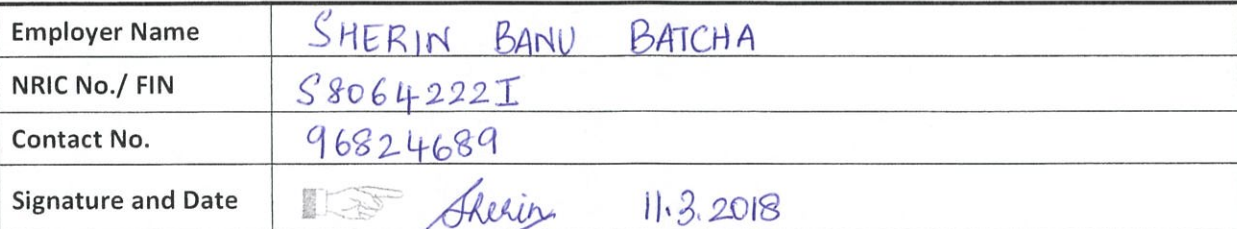 Employer Name SHERIN BANU BATCHA
NRIC No./ FIN S8064222I
Contact No. 96824689
Signature and Date Sherin 11.3.2018